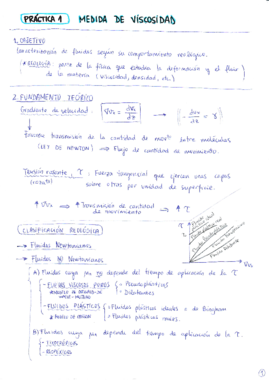 PRÁCTICA 1 MEDIDA DE VISCOSIDAD
1. OBJETIVO
Caracterización de fluidos según su comportamiento reológico.
* REOLOGÍA parte de la física que estudia la deformación y el fluir
de la materia (velocidad, densidad, etc)
2. FUNDAMENTO TEÓRICO
Gradiente de velocidad:
transmisión de la cantidad de movto entre moléculas
(LEY DE NEWTON) → Flujo de cantidad de movimiento.
Tensión cortante, τ : Fuerza tangencial que ejercen unas capas
sobre otras por unidad de superficie.
↑ Transmisión de cantidad → ↑ τ
de movimiento
CLASIFICACIÓN REOLÓGICA
→ Fluidos NEWTONIANOS
→ Fluidos NO NEWTONIANOS
A) Fluidos cuya no depende del tiempo de aplicación de la τ
- FLUIDOS VISCOSOS PUROS - Pseudoplásticos
- Dilatantes
- FLUIDOS PLÁSTICOS - Fluidos plásticos ideales o de Bingham
- Fluidos plásticos reales.
B) Fluidos cuya depende del tiempo de aplicación de la τ.
- TIXOTRÓPICA
- REOPÉCTICA
1